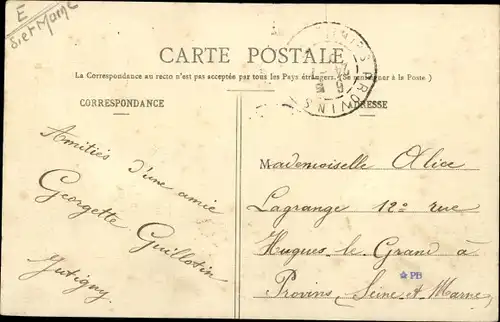 E
S. et Marne
CARTE POSTALE
La Correspondance au recto n'est pas acceptée par tous les Pays étrangers. (Se renseigner à la Poste.)
CORRESPONDANCE
ADRESSE
PROVINS
Amitiés d'une amie
Georgette Guillotin
Jutigny
Mademoiselle Alice
Lagrange 12 rue
Hugues le Grand à
Provins Seine et Marne
PB